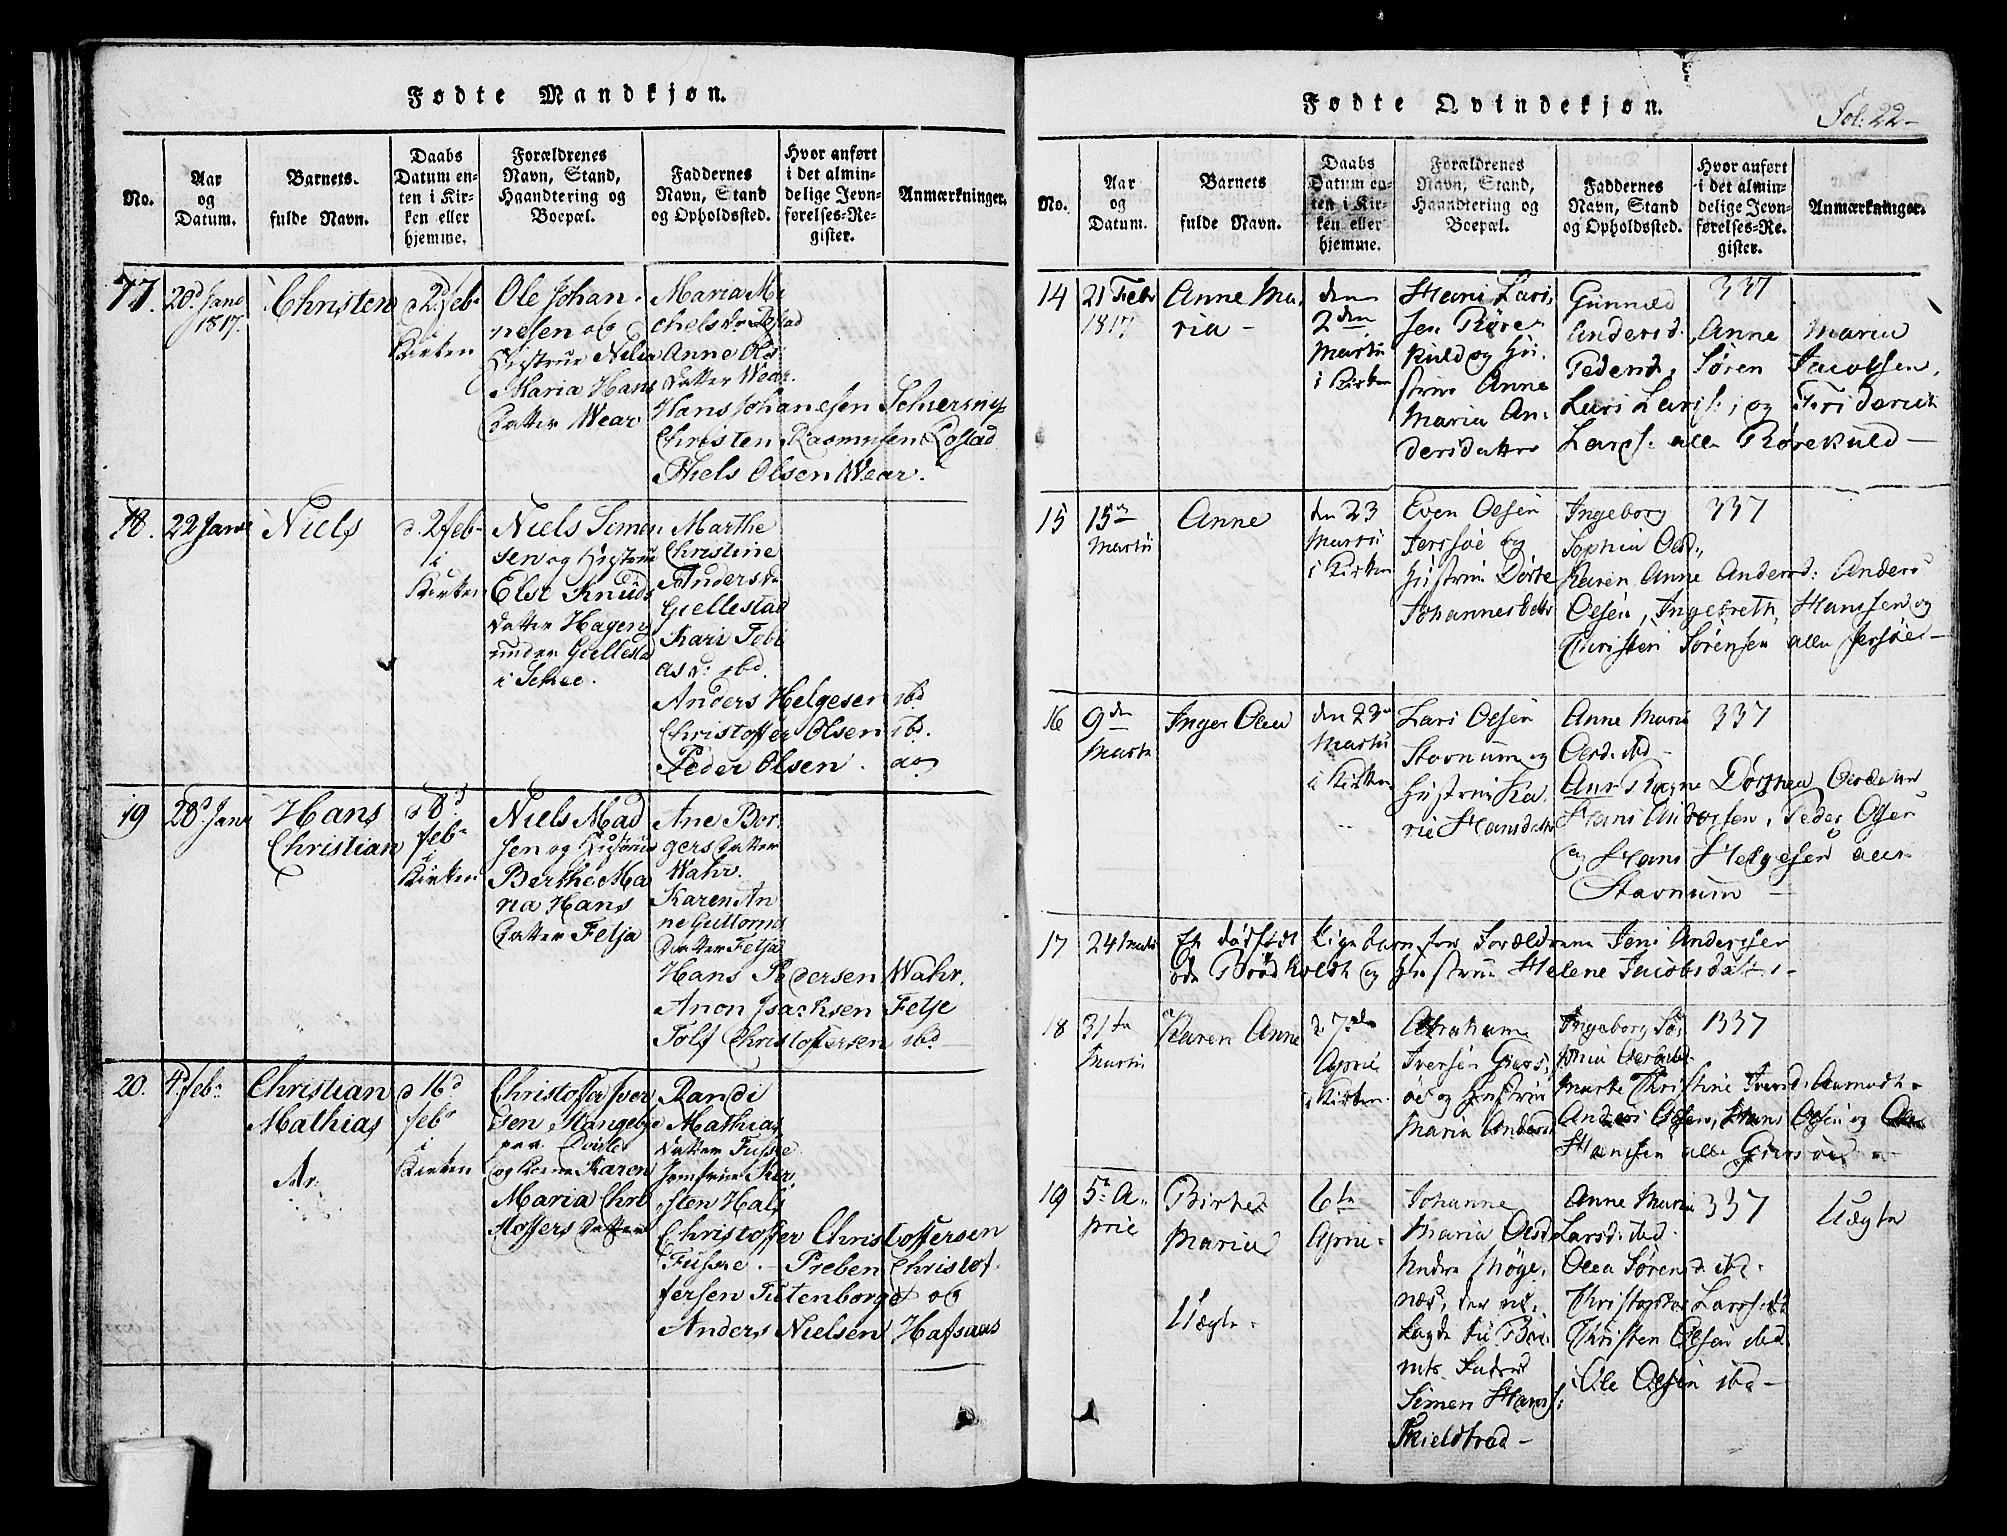 Fødte Mandkjøn.
No.
Aar
og
Datum.
Barnets.
fulde Navn.
Daabs
Datum en-
ten i Kir-
ken eller
hjemme.
Forældrenes
Navn, Stand,
Haandtering og
Boepæl.
Faddernes
Navn, Stand
og Opholdssted.
Hvor anført
i det almin-
delige Jevn-
førelses-Re-
gister.
Anmærkninger.
17.
20d Janr
1817.
Christen
d 2 feb.
Kirken
Ole Johan-
nesen og
Hustrue
Maria Hans
Datter Wear
Maria Mi
chels
Anne Ols
Datter Wear.
Hans Johanesen
Christen Rasmusen Rostad
Niels Olsen Wear.
18.
22 Janr
Niels
d. 2 feb.
i
Kirken
Niels Simen
sen og Hustrue
Else Knuds
datter Hagen
under Gullestad
i Schee.
Marthe
Christine
Anders
Gullestad
Kari Tobi
as d: ibd.
Anders Helgesen ibd
Christoffer Olsen ibd.
Peder Olsen. do
19
28d Janr
Hans
Christian
d 8d
feb.
i
Kirken
Niels Mad
sen og Hustrue
Berthe Ma
ria Hans
Datter Felja
Ane Bor
gers datter
Wahr.
Karen An
ne Guttorms
Datter Felja
Hans Pedersen Wahr.
Anon Isacksen Felje
Tolf Christoffersen ibd
20.
4 feb.
Christian
Mathias
d 16d
febr
i
Kirken
Christoffer Iver
sen Mangebye
og Kone Karen
Maria Chri
stoffers datter
Randi
Mathias
datter Fuske
Jomfrue Kir
sten Hals
Christoffer Christoffersen
Fuske. Preben Christof-
fersen Tutenborg og
Anders Nielsen Hafsaas
Fødte Qvindekjøn.
Fol: 22-
No.
Aar
og
Datum.
Barnets
fulde Navn.
Daabs
Datum en-
ten i Kir-
ken eller
hjemme.
Forældrenes
Navn, Stand,
Haandtering og
Boepæl.
Faddernes
Navn, Stand
og Opholdssted.
Hvor anført
i det almin-
delige Jevn-
førelses-Re-
gister.
Anmærkninger.
14
21 Febr
1817
Anne Ma-
ria -
den
2den
Martii
i Kirken
Hans Lar-
sen Røre-
kuld og Hu-
strue Anne
Maria An-
dersdatter
Gunnild
Andersd.
337
Anne Maria
Pedersd, Søren Jacobsen,
Lars Lars: og Friderich
Lars: alle Rørekuld -
15
15de
Martii
Anne
den 23
Martii
i Kirken
Even Olsen
Jersøe og
Hustrue Dorte
Johannesdatter
Ingeborg
Sophia Olsd.,
337
Karen Anne Andersd: Anders
Olsen, Ingebreth Hanssen og
Christen Sørensen alle Jersøe -
16
9den
Martii
Inger Olea
den 23
Martii
i Kirken
Lars Olsen
Stavnum og
Hustrue Ka-
rie Hansdatter
Anne Marie
Olsd. ibd -
337
Dorthea
Hans Andersen, Peder Olsen
og Hans Helgesen alle
Stavnum -
17
24 Martii
Et dødfødt Pigebarn for Forældrene Jens Andersen
Brødholdt og Hustrue Helene Jacobsdatter -
18
31te
Martii
Karen Anne
d. 7de
April
i Kirken.
Abraham
Iversen Græs-
øe og Hustrue
Maria Andersd
Ingeborg So-
phia Olsd ibd
1337
Marte Christine Iversd: Aamodt
Anders Olsen, Hans Olsen og
Hansen alle Græsøe
19
5te A-
pril
Birthe
Maria
Uægte.
6te
April.
Johanne
Maria Olsd
Nedre Høge-
næs, der ud-
lagde til Bar-
nets Fader
Simen Hans:
Skieldbred -
Anne Maria
Larsd. ibd.
337
Uægte
Olea Sørensd. ibd.
Christopher Larss: ibd
Christen Olsen ibd.
Ole Olsen ibd -